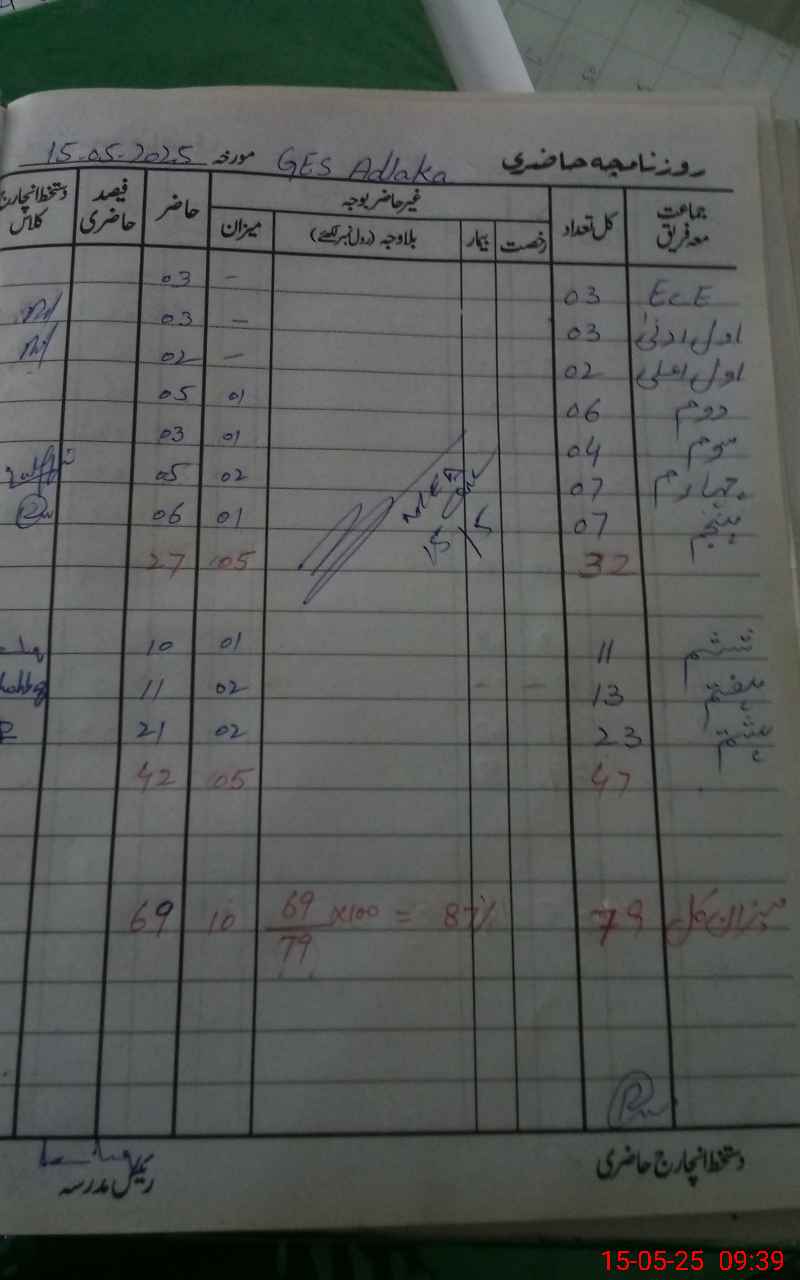 روزنامچہ حاضری GES Adlaka مورخہ 15-05-2025
جماعت معہ فریق کل تعداد غیر حاضر بوجہ حاضر فیصد حاضری دستخط انچارج کلاس
رخصت بیمار بلاوجہ (رول نمبر لکھئے) میزان
EcE 03 - 03
اول ادنیٰ 03 - 03
اول اعلیٰ 02 - 02
دوم 06 01 05
سوم 04 01 03
چہارم 07 02 05
پنجم 07 01 06
32 05 27
15/5
ششم 11 01 10
ہفتم 13 02 11
ہشتم 23 02 21
47 05 42
میزان کل 79 69/79 x100 = 87% 10 69
دستخط انچارج حاضری رئیس مدرسہ
15-05-25 09:39